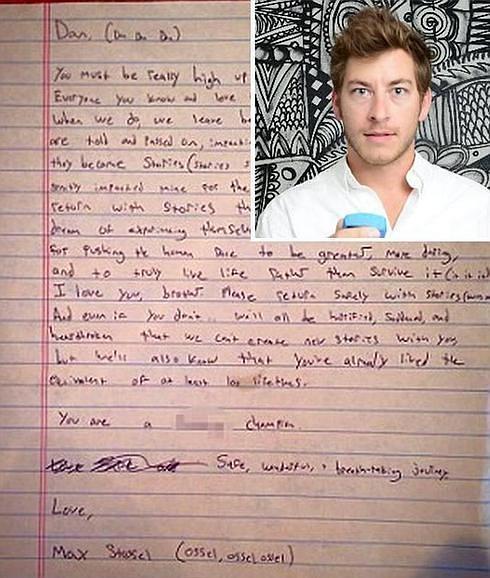 Dan, (Da Da Da)
You must be really high up
Everyone you know and love
When we do, we leave be
are told and passed on, impacti
they become Stories (stories s
impacted mine for the
return with stories th
dream of experiencing themselv
for pushing the human race to be greater, more daring,
and to truly live life rather than survive it (
I love you, brother. Please return safely with stories
And even if you don't.. we'll all be horrified, saddened, and
heartbroken that we can't create new stories with you,
but we'll also know that you've already lived the
equivalent of at least 100 lifetimes.
You are a champion.
Safe, wonderful, + breath-taking journey
Love,
Max Stossel (ossel, ossel, ossel)